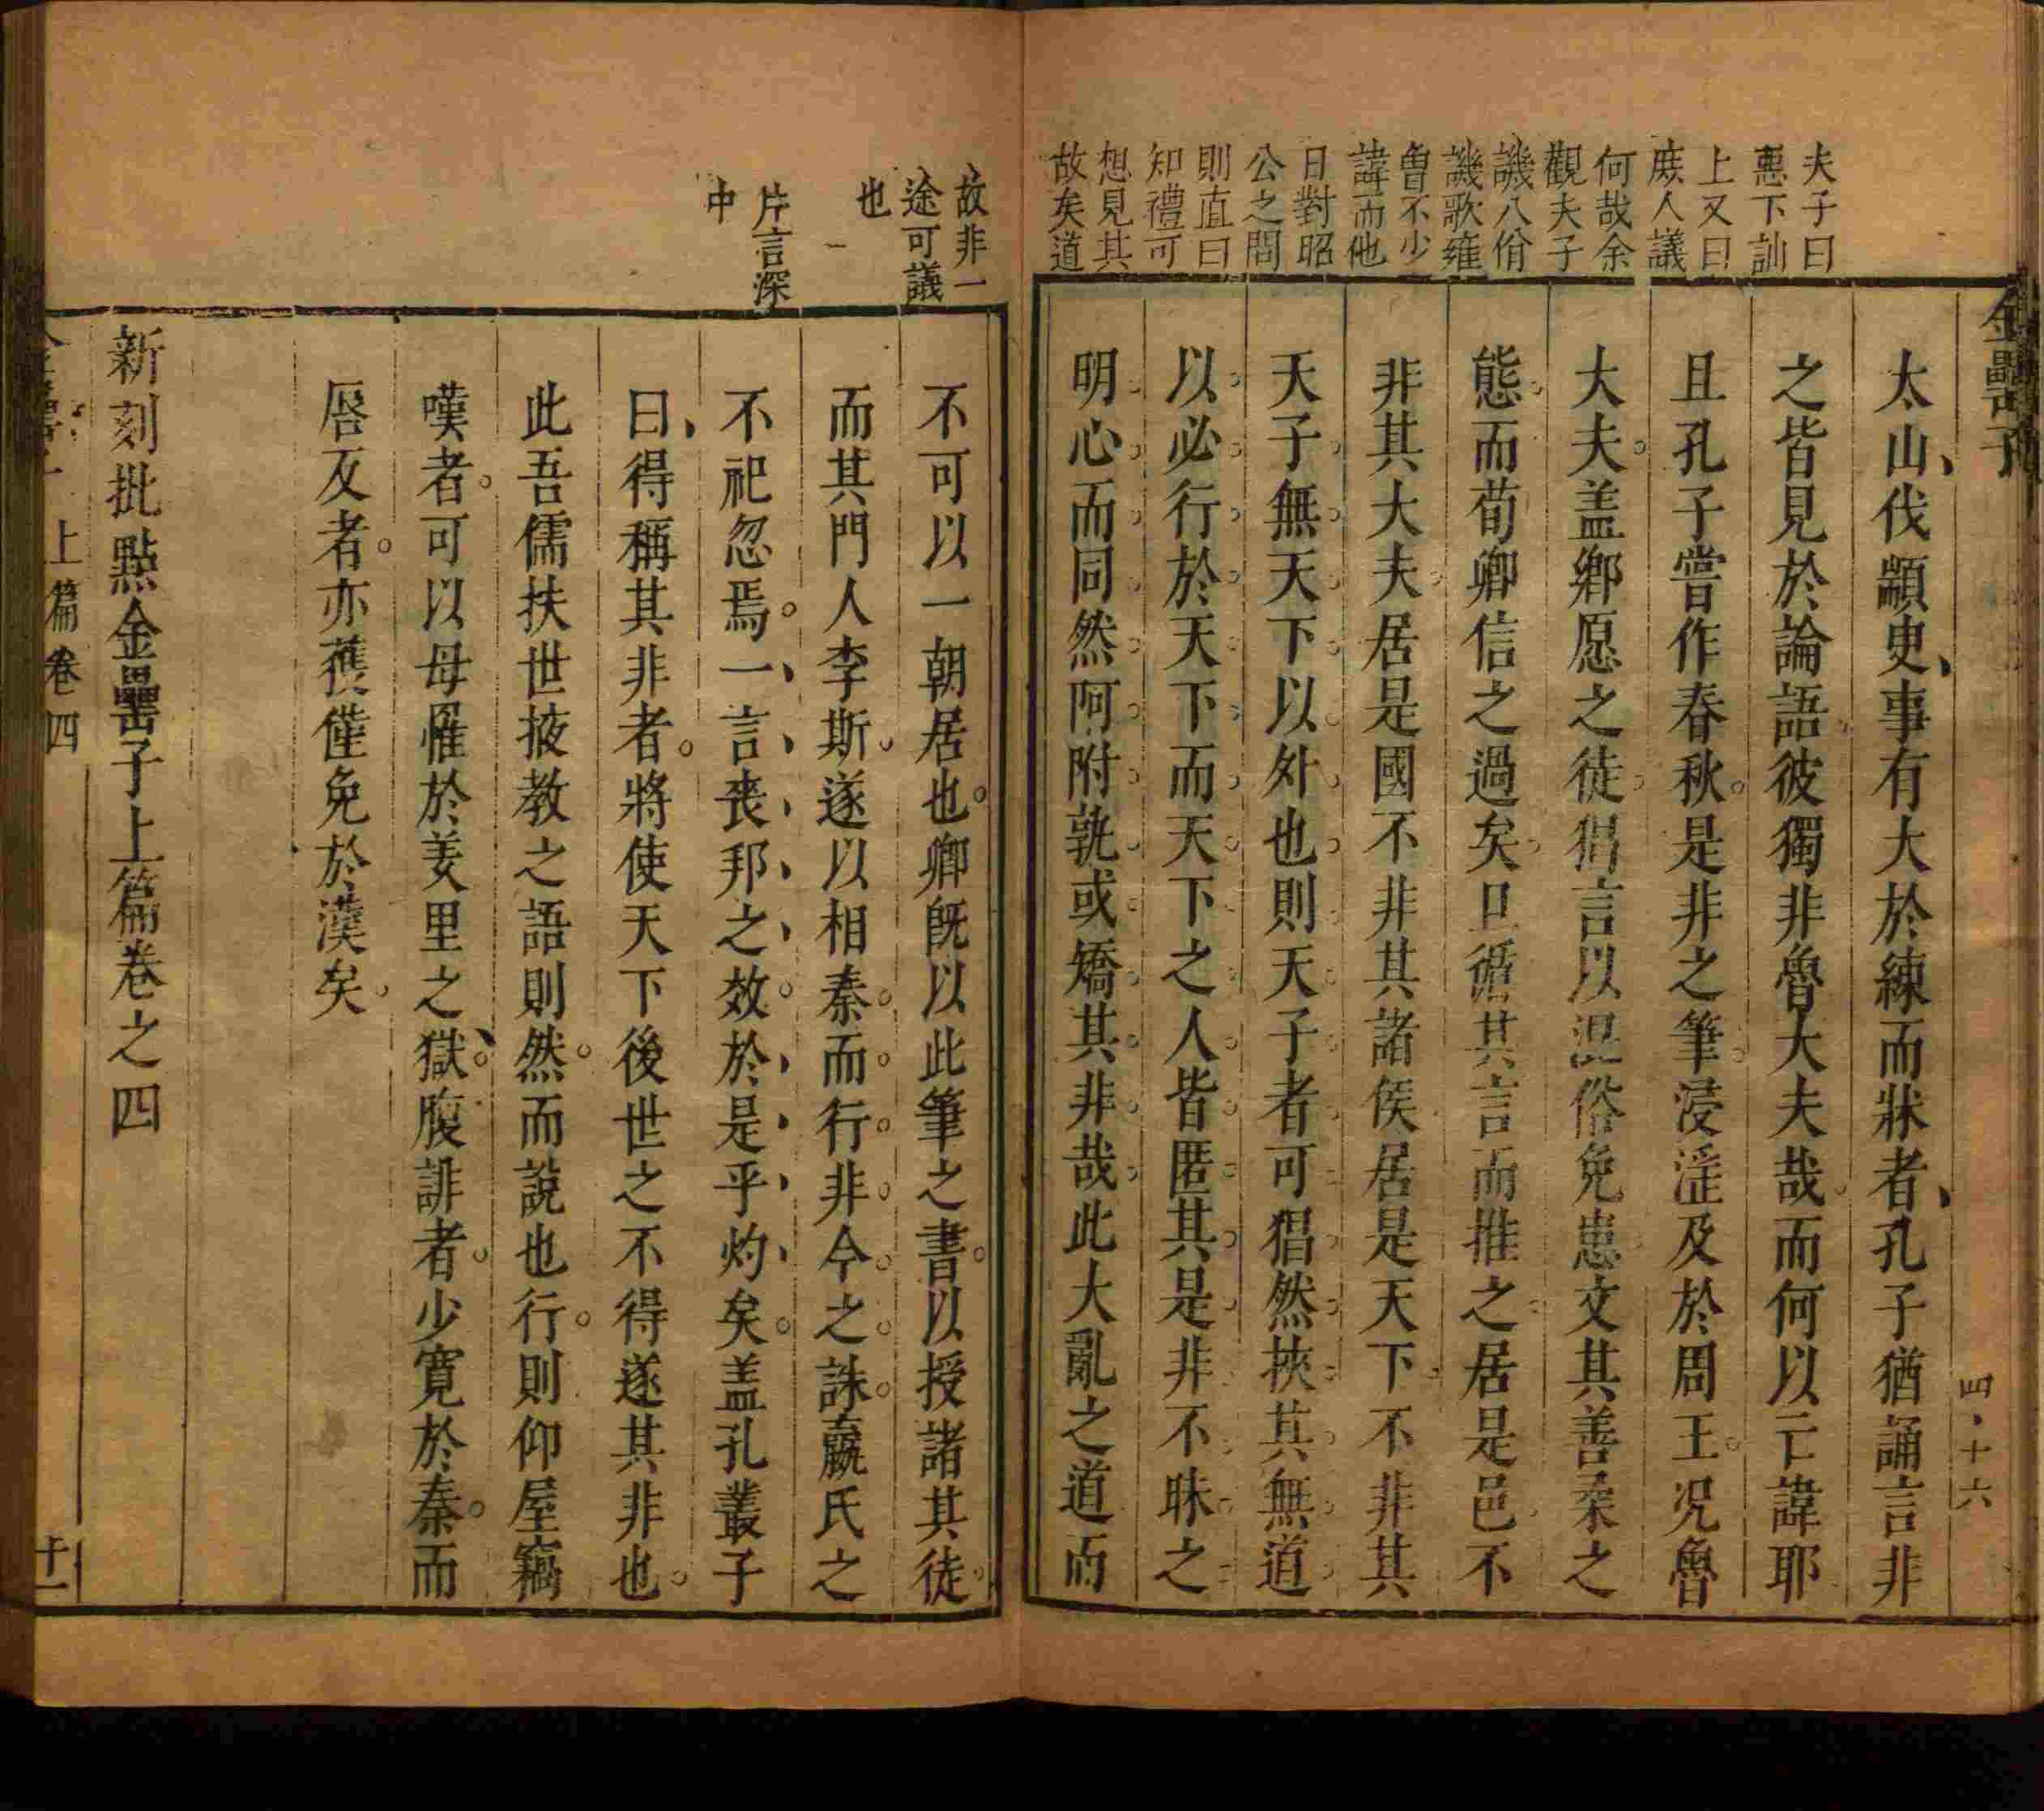 金罍子
四、十六
夫子曰
惡下訕
上又曰
庶人議
何哉余
觀夫子
譏八佾
譏歌雍
曾不少
諱而他
日對昭
公之問
則直曰
知禮可
想見其
故矣道
太山伐顓臾事有大於練而牀者孔子猶誦言非
之皆見於論語彼獨非魯大夫哉而何以亡諱耶
且孔子嘗作春秋是非之筆浸淫及於周王况魯
大夫盖鄉愿之徒猖言以混俗免患文其善柔之
態而荀卿信之過矣且循其言而推之居是邑不
非其大夫居是國不非其諸侯居是天下不非其
天子無天下以外也則天子者可猖然挾其無道
以必行於天下而天下之人皆匿其是非不昧之
明心而同然阿附孰或矯其非哉此大亂之道而
故非一
途可議
也
片言深
中
不可以一朝居也卿旣以此筆之書以授諸其徒
而其門人李斯遂以相秦而行非今之誅嬴氏之
不祀忽焉一言喪邦之效於是乎灼矣盖孔叢子
曰得稱其非者將使天下後世之不得遂其非也
此吾儒扶世掖教之語則然而說也行則仰屋竊
嘆者可以毋罹於羑里之獄腹誹者少寛於秦而
唇反者亦獲僅免於漢矣
新刻批點金罍子上篇卷之四
上篇卷四
十一